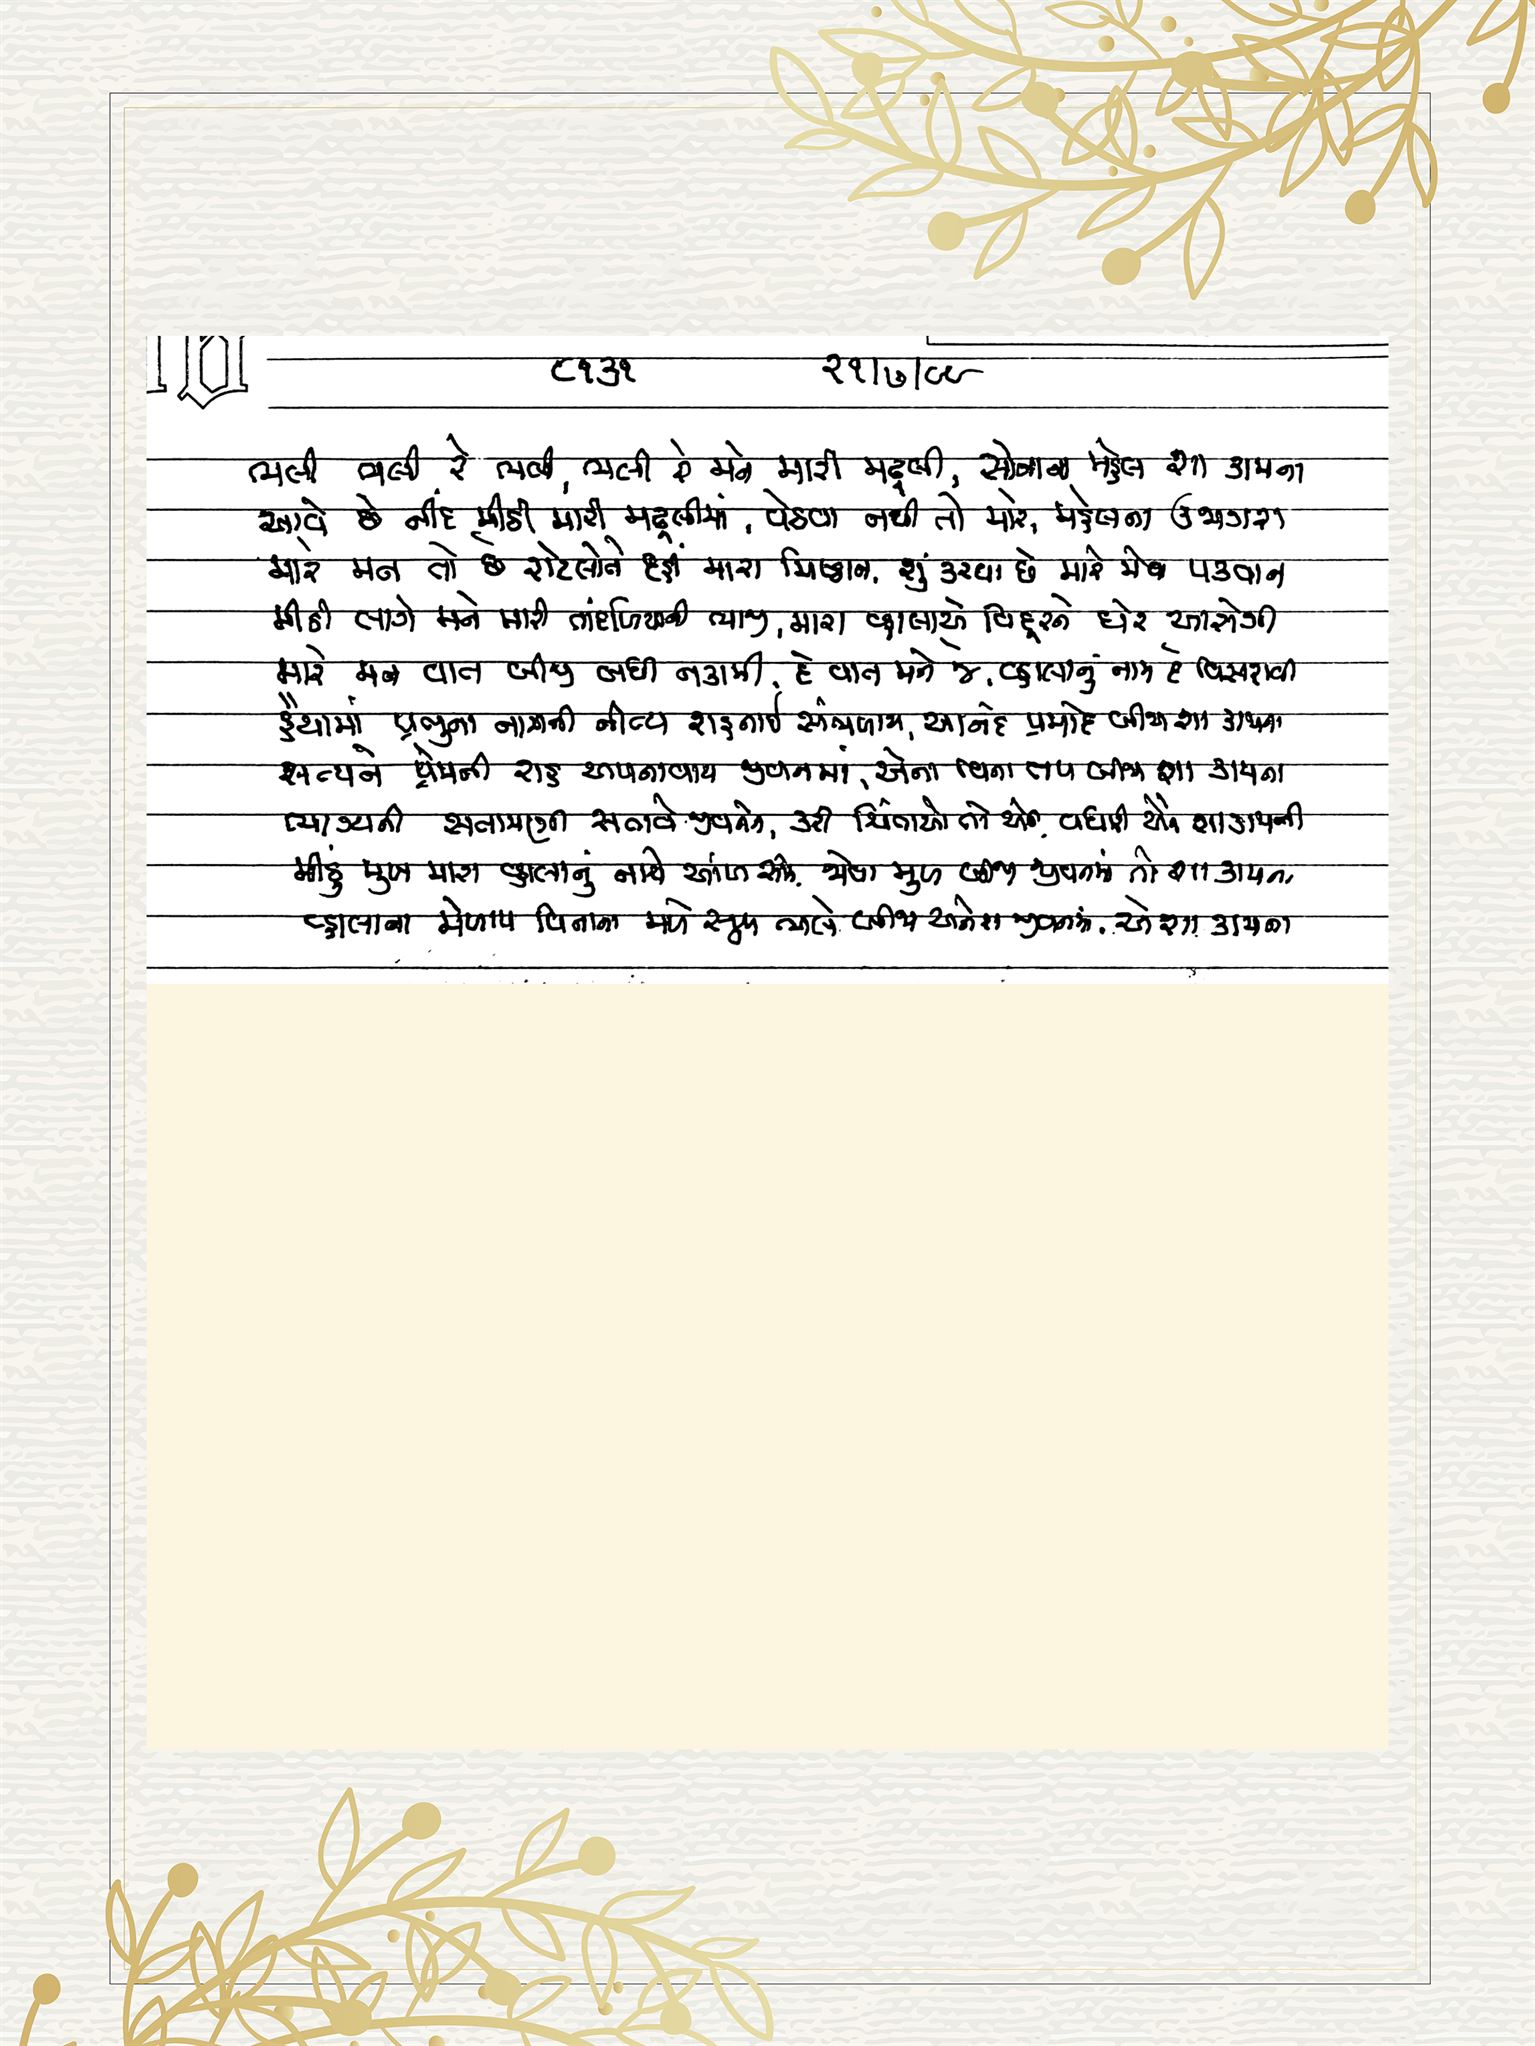 ૮૧૩૧ ૨૧/૭/૯૯
ભલી ભલી રે ભલી, ભલી રે મને મારી મઢૂલી, સોનાના મહેલ શા કામના
આવે છે નીંદ મીઠી મારી મઢૂલીમાં, વેઠવા નથી તો મારે, મહેલના ઉજાગરા
મારે મન તો છે રોટલોને દહીં મારા મિષ્ટાન. શું કરવા છે મારે મેવા પકવાન
મીઠી લાગે મને મારી તાંદળિયાની ભાજી, મારા વ્હાલાએ વિદૂરને ઘેર આરોગી
મારે મન વાત બીજી બધી નકામી. દે વાત મને જે. વ્હાલાનું નામ દે વિસરાવી
હૈયામાં પ્રભુના નામની નીત્ય શહનાઈ સંભળાય, આનંદ પ્રમોદ બીજા શા કામના
સત્યને પ્રેમની રાહ અપનાવાય જીવનમાં, એના વિના તપ બીજા શા કામના
ભાગ્યની સતામણી સતાવે જીવનને, કરી ચિંતાઓ તો એની. વધારી એને શા કામની
મીઠું મુખ મારા વ્હાલાનું નાચે આંખ સામે. જોવા મુખ બીજા જીવનમાં તો શા કામના
વ્હાલાના મેળાપ વિનાના મળે સુખ ભલે બીજા અનેરા જીવનમાં. એ શા કામના